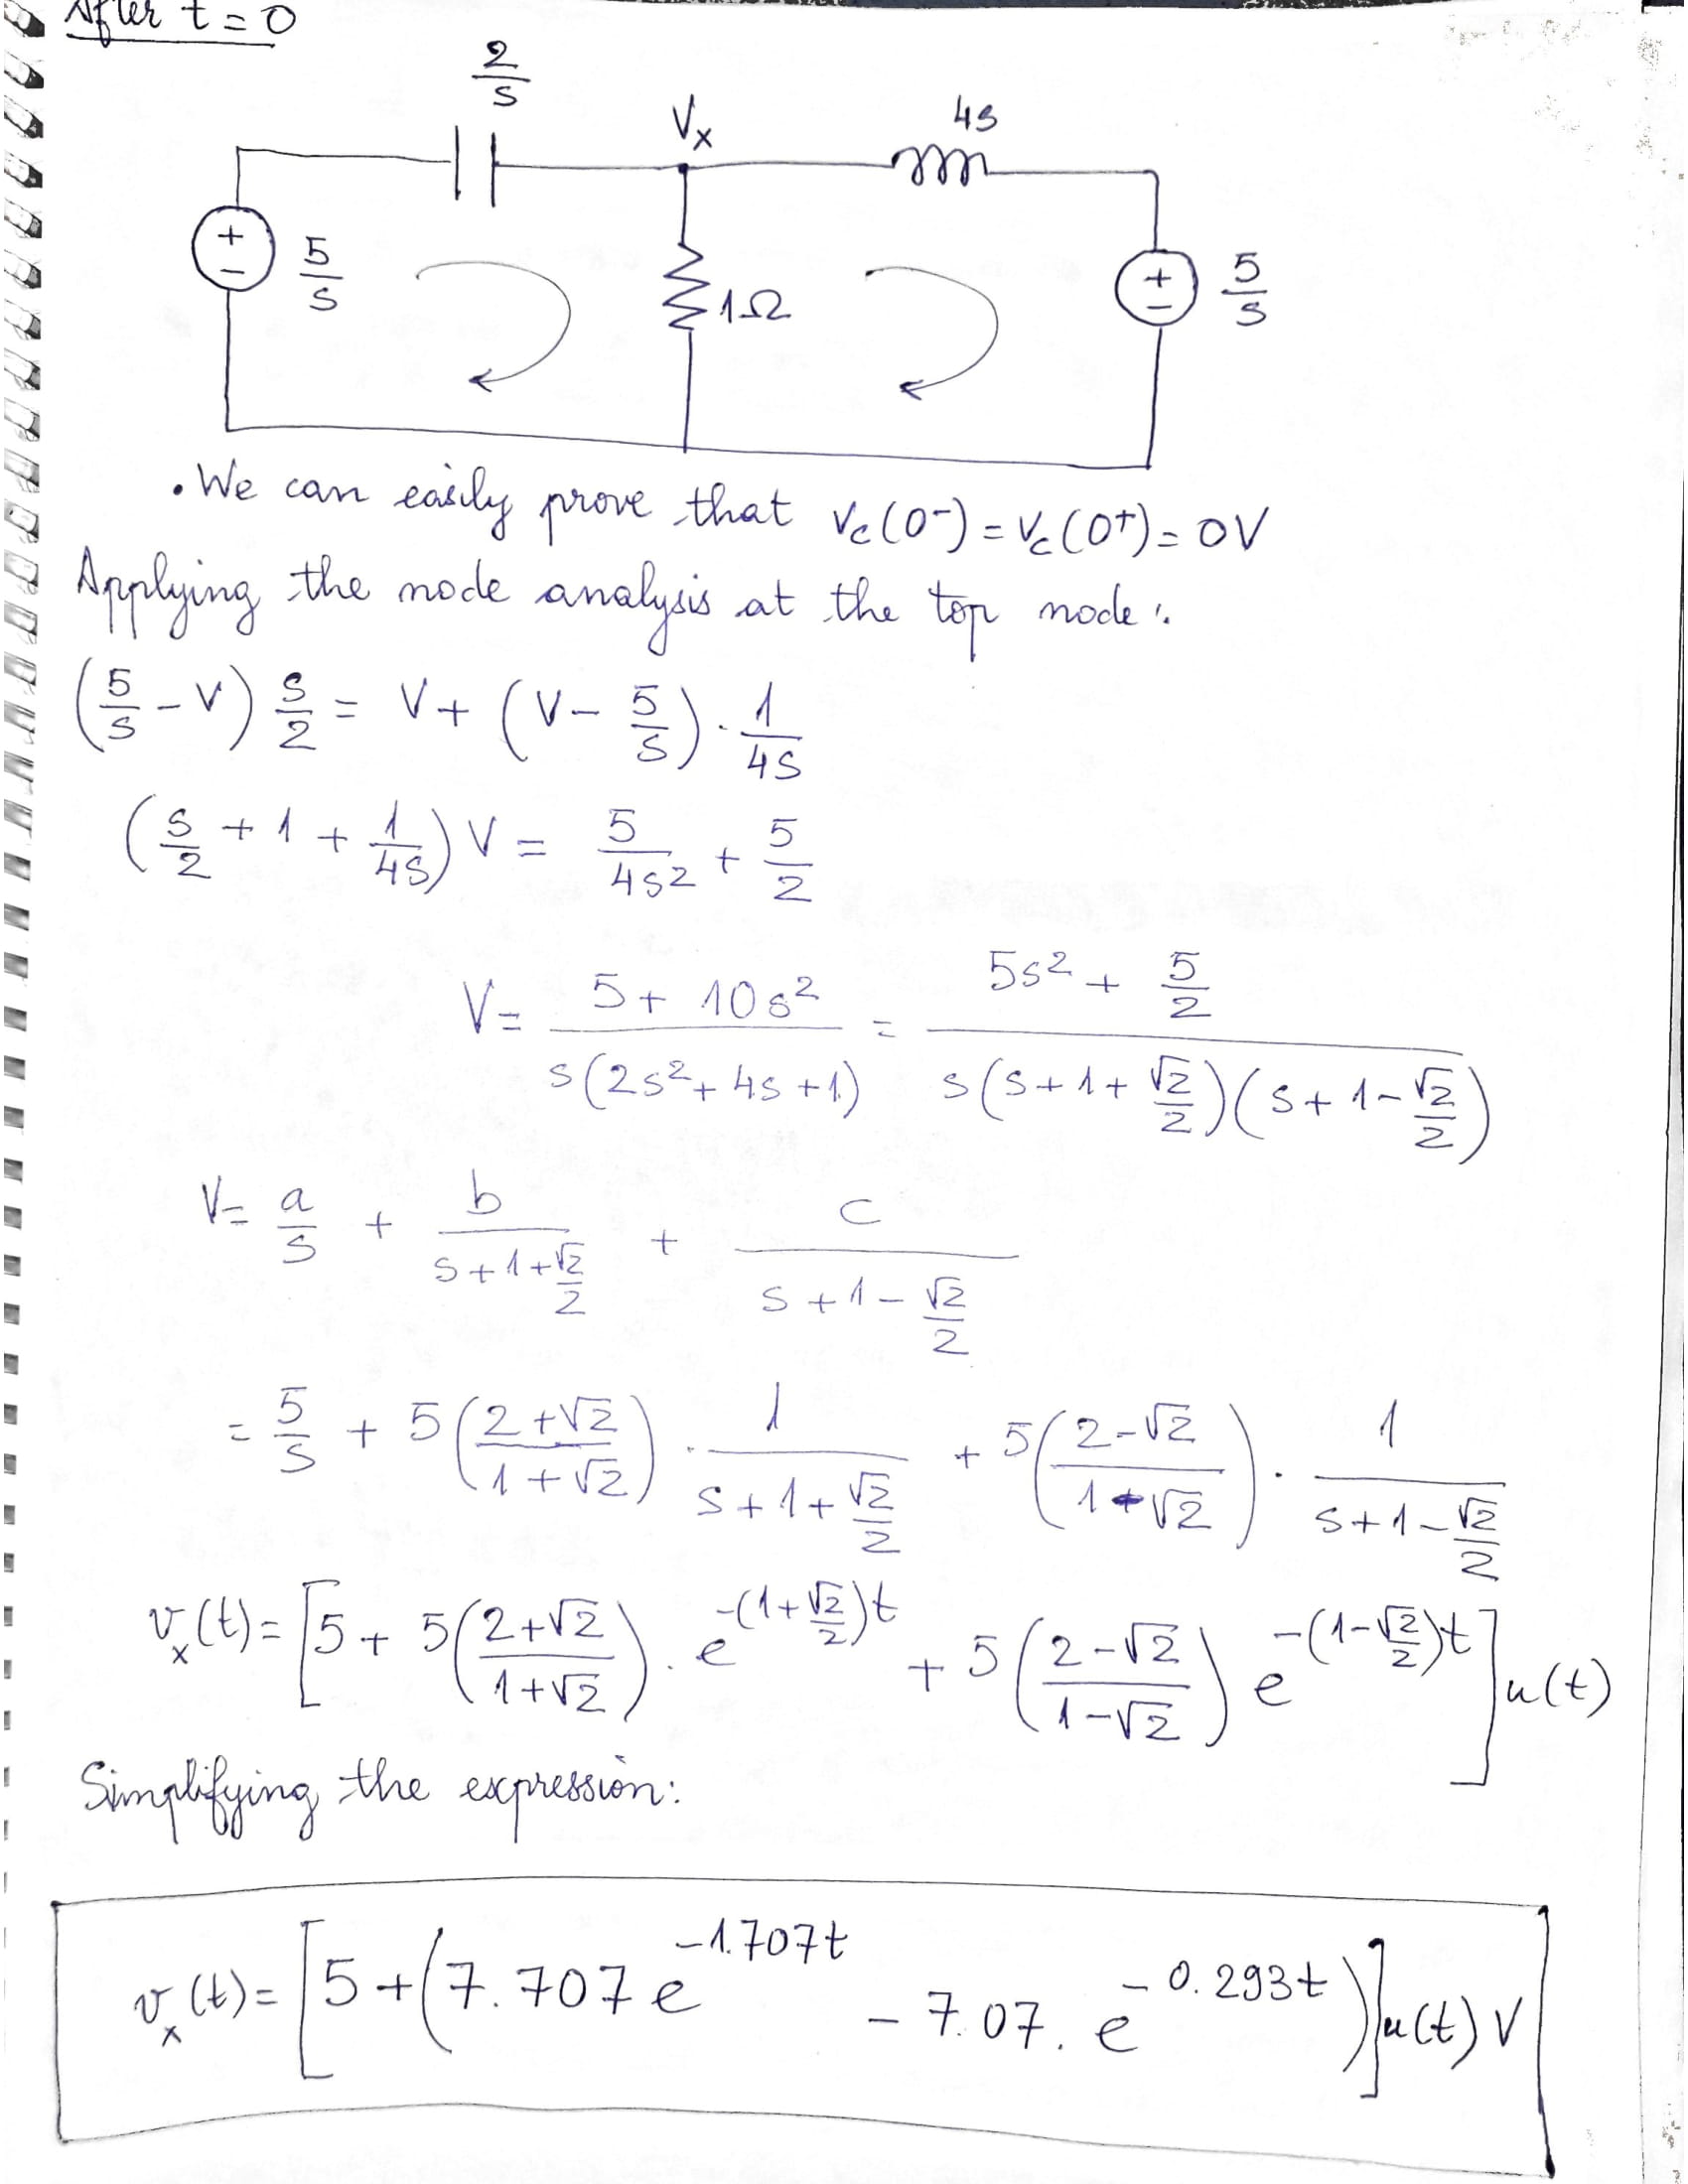 After t = 0
2/s
Vx
4s
+
−
5/s
1Ω
+
−
5/s
• We can easily prove that Vc(0⁻) = Vc(0⁺) = 0V
Applying the node analysis at the top node:
(5/s − V) s/2 = V + (V − 5/s) · 1/4s
(s/2 + 1 + 1/4s) V = 5/4s² + 5/2
V = (5 + 10s²)/(s(2s² + 4s + 1)) = (5s² + 5/2)/(s(s + 1 + √2/2)(s + 1 − √2/2))
V = a/s + b/(s + 1 + √2/2) + c/(s + 1 − √2/2)
= 5/s + 5((2 + √2)/(1 + √2)) · 1/(s + 1 + √2/2) + 5((2 − √2)/(1 − √2)) · 1/(s + 1 − √2/2)
vx(t) = [5 + 5((2 + √2)/(1 + √2)) . e^−(1 + √2/2)t + 5((2 − √2)/(1 − √2)) e^−(1 − √2/2)t] u(t)
Simplifying the expression:
vx(t) = [5 + (7.707 e^−1.707t − 7.07. e^−0.293t)] u(t) V